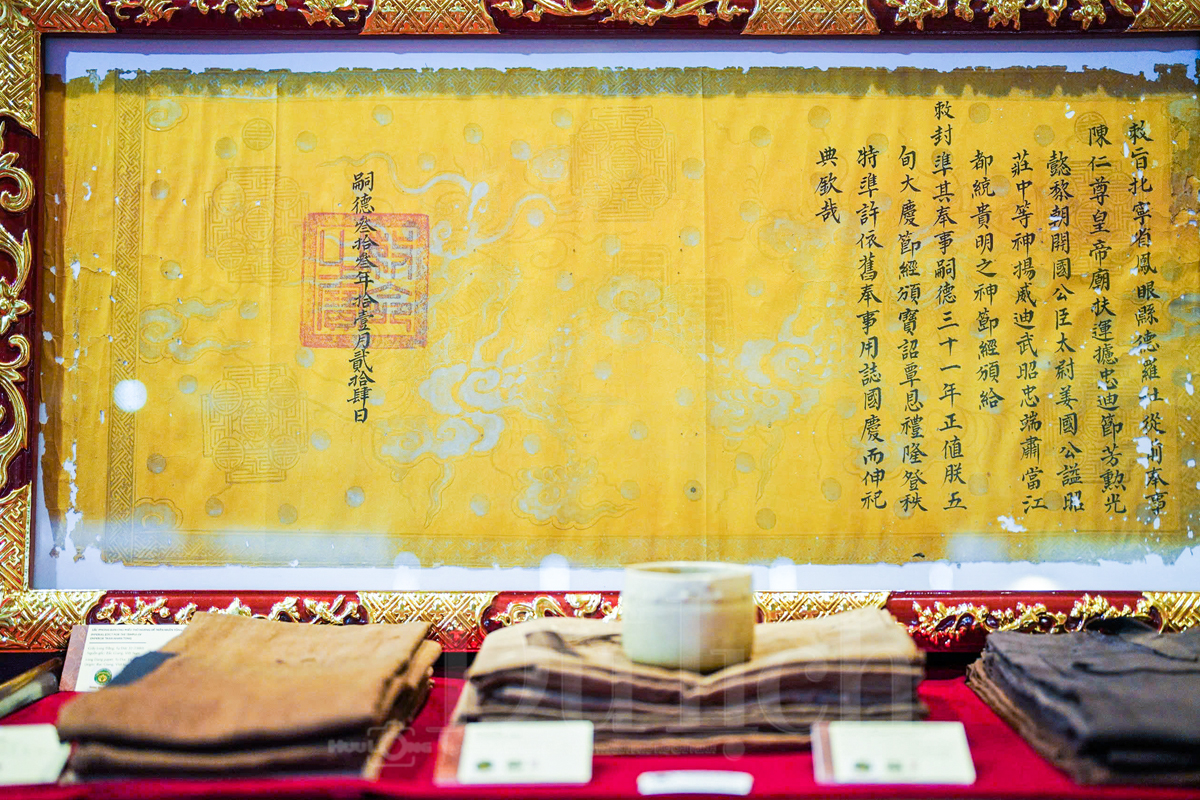 敕旨北寧省鳳眼縣德羅社從前奉事
陳仁尊皇帝廟扶運攄忠迪節芳勲光
懿黎朝開國公臣太尉姜國公謚昭
莊中等神揚威迪武昭忠端肅當江
都統貴明之神節經頒給
敕封準其奉事嗣德三十一年正值朕五
旬大慶節經頒寶詔覃恩禮隆登秩
特準許依舊奉事用誌國慶而伸祀
典欽哉
嗣德叁拾叁年拾壹月貳拾肆日
Du lịch
HUULONG